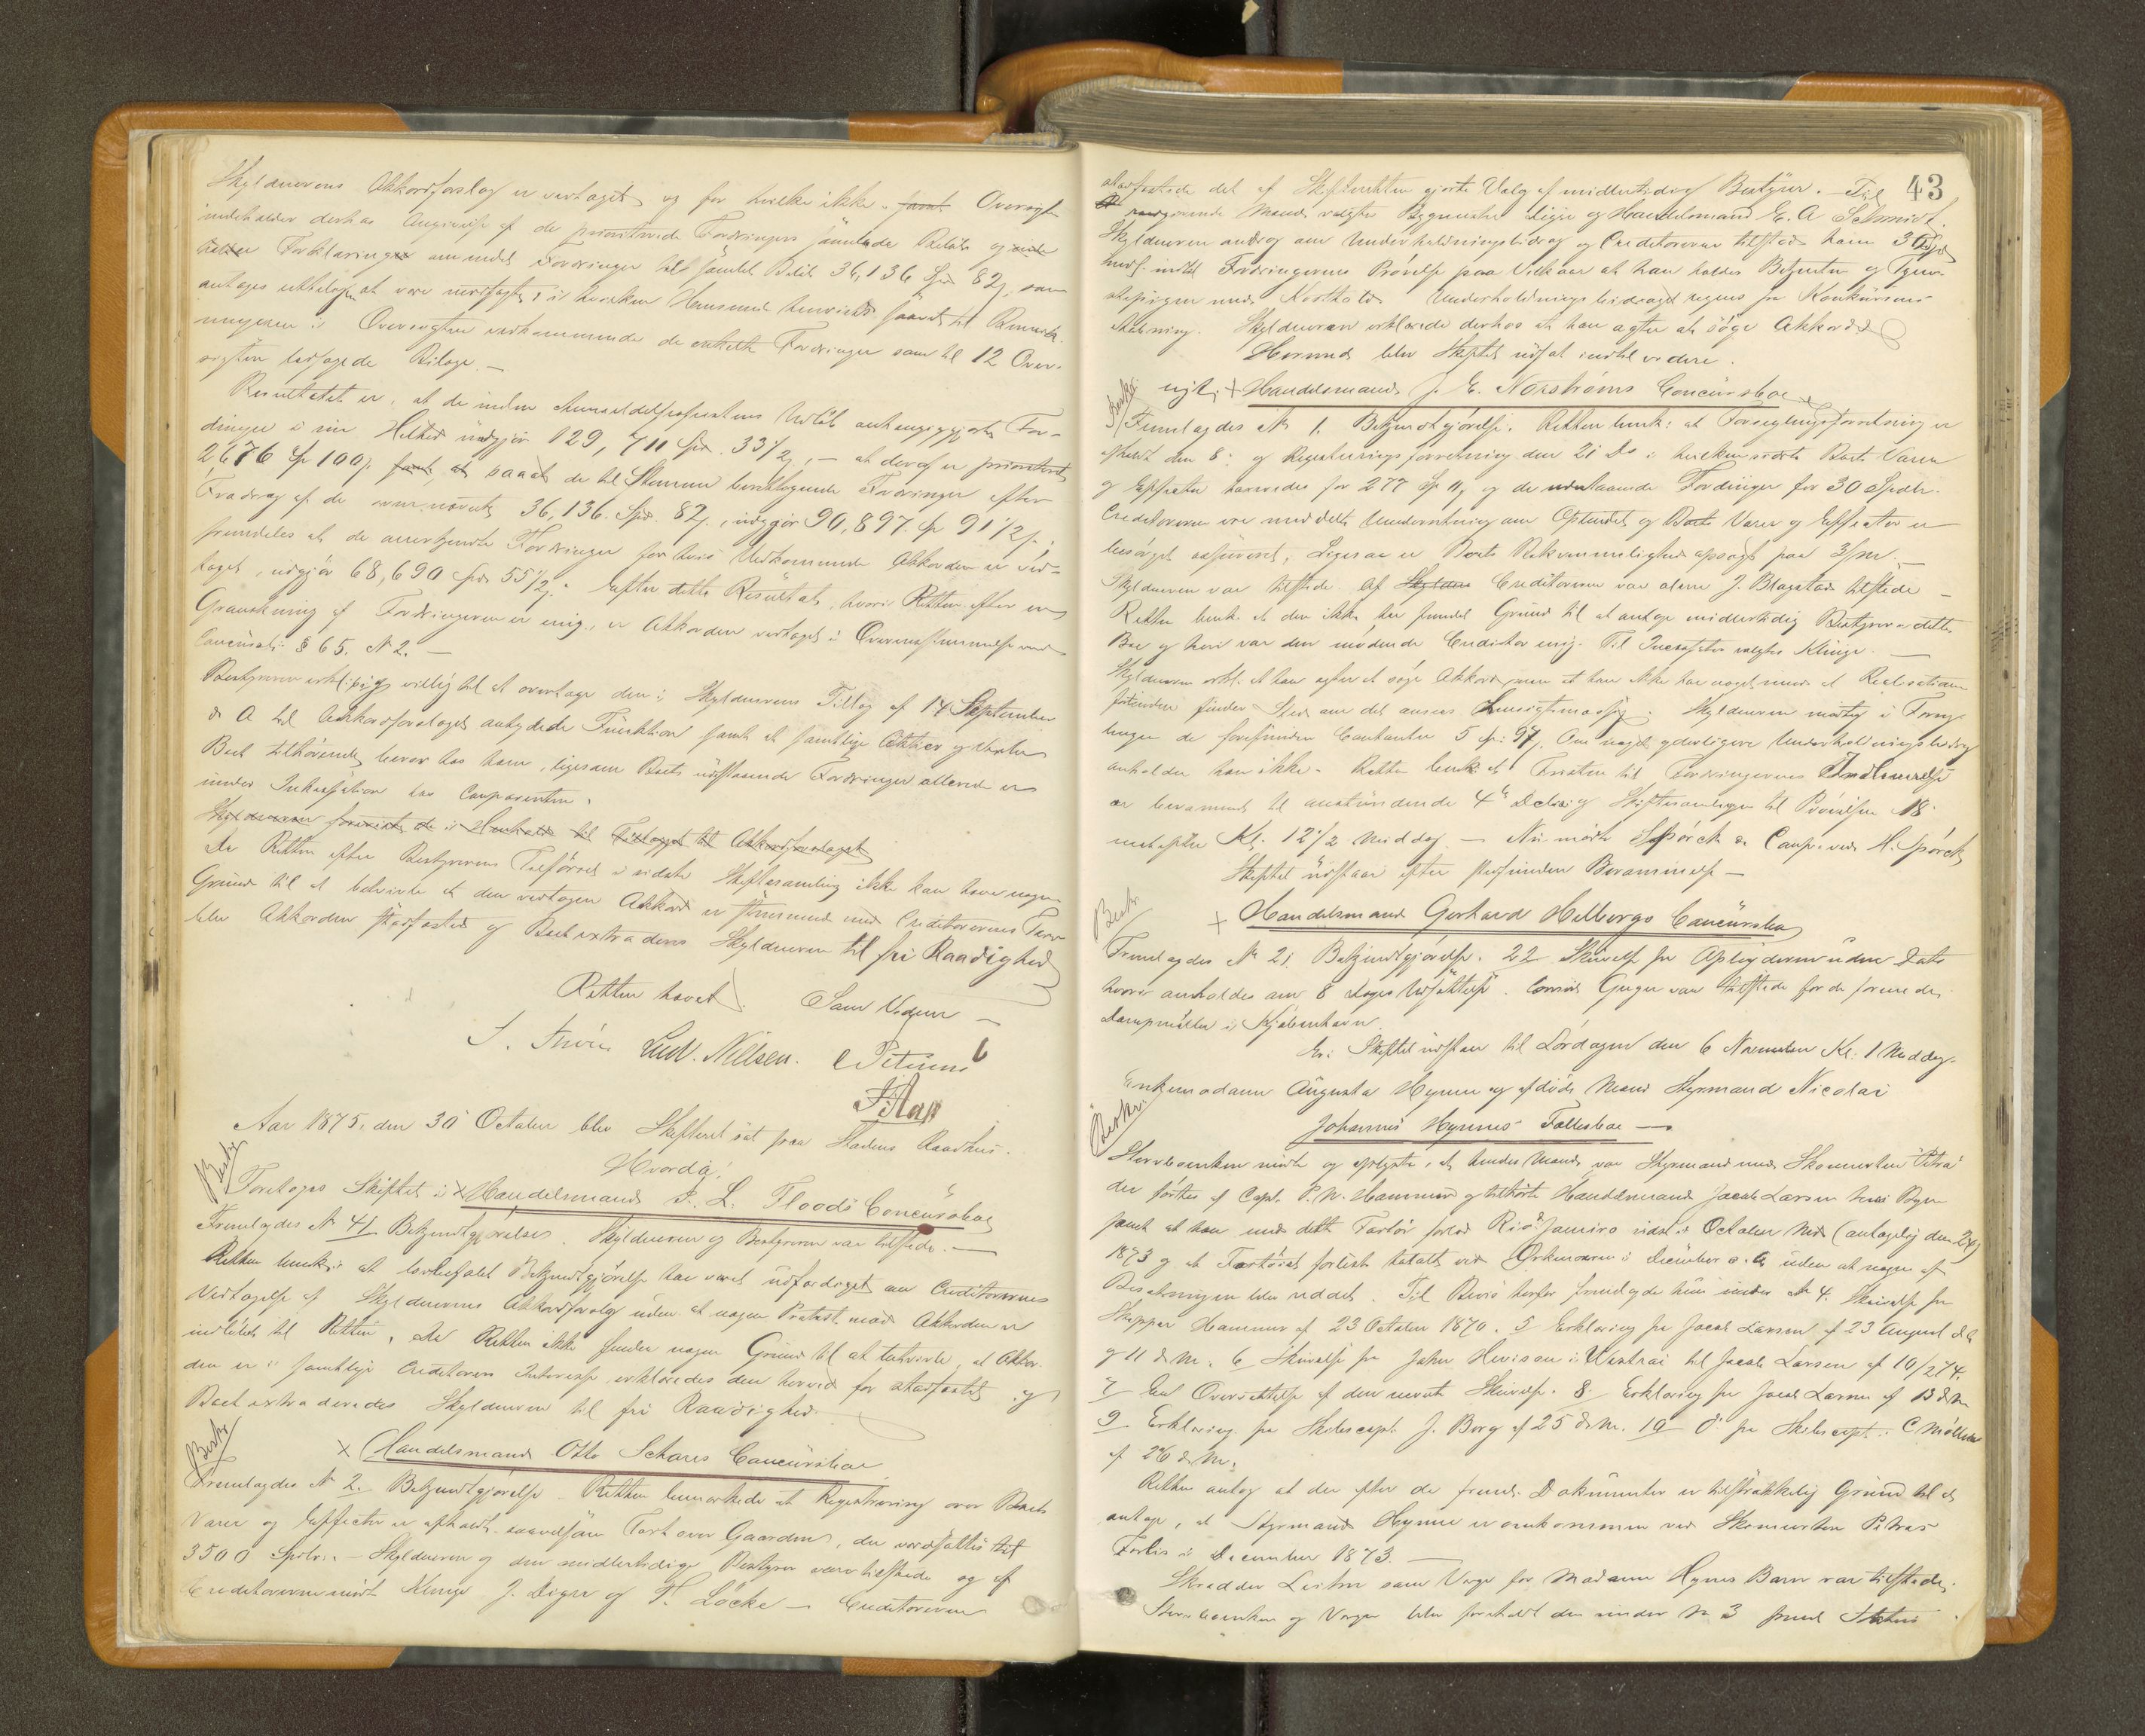 Skyldnerens Akkordforslag er vedtaget og for hvilke ikke. samt Oversigt
indeholder derhos Angivelse af de prioriterede Fordringers samlede Beløb og
Forklaringer om endel Fordringer til samlet Beløb 36,136 Spd 82ȷ, som
antages at være i hvilken Henseende henvises saavel til Bemærk-
ningerne i Oversigten vedkommende de enkelte Fordringer som til 12 Over-
sigten ledsagede Bilage. —
Resultatet er, at de inden Anmeldelsesfristens Udløb anhængiggjorte For-
dringer i sin Helhed udgjør 129,711 Spd. 33½ȷ, — at deraf er prioriteret
2676 Sp 100ȷ. samt, at saaat de til Stemme berettigende Fordringer efter
Fradrag af de ovennævnte 36,136. Spd. 82ȷ., udgjør 90,897. Sp 91½ȷ.;
fremdeles at de anerkjendte Fordringer for hvis Vedkommende Akkorden er ved-
taget, udgjør 68,690 Spd 55½ȷ. Efter dette Resultat, hvori Retten efter en
Granskning af Fordringerne er enig, er Akkorden vedtaget i Overensstemmelse med
Concursl. § 65. N 2. —
Bestyreren erkl. sig villig til at overtage den i Skyldnerens Tillæg af 14 September
d. A til Akkordforslaget antydede Funktion samt at samtlige Aktier og Vexler
Boet tilhørende beror hos ham, ligesom Boets udestaaende Fordringer allerede er
under Inkassation hos Comparenten.
Skyldneren foreviste de i Henhold til Tillægget til Akkordforslaget
Da Retten efter Bestyrerens Tilførsel i sidste Skiftesamling ikke kan have nogen
Grund til at betvivle at den vedtagne Akkord er stemmende med Creditorernes Tarv
blev Akkorden stadfæstet og Boet extraderes Skyldneren til fri Raadighed
Retten hævet. Som Vidner —
Lud. Nilsen. C Petersen
Aar 1875. den 30 October blev Skifteret sat paa Stadens Raadhus.
Hvorda:
Beskr
Foretoges Skiftet i x Handelsmand F. L. Floods Concursbo
Fremlagdes N 41 Bekjendtgjørelse. Skyldneren og Bestyreren var tilstede. —
Retten bemk: at lovbefalet Bekjendtgjørelse har været udfærdiget om Creditorernes
Vedtagelse af Skyldnerens Akkordforslag uden at nogen Protest mod Akkorden er
indløbet til Retten. Da Retten ikke finder nogen Grund til at betvivle, at Akkor-
den er i samtlige Creditorers Interesse erklæredes den herved for stadfæstet og
Boet extraderedes Skyldneren til fri Raadighed.
Beskr
x Handelsmand Otto Schares Concursboe
Fremlagdes N 2. Bekjendtgjørelse. Retten bemærkede at Registrering over Boets
Varer og Effecter er afholdt saavelsom Taxt over Gaarden, der værdsattes til
3500 Spdlr. — Skyldneren og den midlertidige Bestyrer vare tilstede og af
Creditorerne mødte Klinge J. Digre og F. Løcke — Creditorerne
43
stadfæstede det af Skifteretten gjorte Valg af midlertidig Bestyrer. — Til
raadgivende Mænd valgtes Bygmester Digre og Handelsmand E. A Schmidt.
Skyldneren androg om Underholdningsbidrag og Creditorerne tilstod ham 30 Spd
indtil Fordringernes Prøvelse paa Vilkaar at han holder Betjenten og
med Kosthold. Underholdningsbidraget regnes fra Konkursens
Aabning. Skyldneren erklærede derhos at han agter at søge Akkord
Hermed blev Skiftet udsat indtil videre.
Beskr
x Handelsmand J. E. Norstrøms Concursboe
Fremlagdes N 1. Bekjendtgjørelse. Retten bemk: at Forseglingsforretning er
afholdt den 8: og Registreringsforretning den 21 Ds i hvilken sidste Boets Varer
og Effecter taxeredes for 277 Sp 11ȷ og de udestaaende Fordringer for 30 Spdlr.
Creditorerne ere meddelte Underretning om Opbudet og Boets Varer og Effecter er
besørget assureret, Ligesaa er Boets Bekvemmelighed opsagt paa 3/m. —
Skyldneren var tilstede. Af Skyldne Creditorerne var alene J. Blagstad tilstede —
Retten bemk. at den ikke har fundet Grund til at antage midlertidig Bestyrer i dette
Boe og heri var den mødende Creditor enig. Til Incassator valgtes Klinge. —
Skyldneren erkl. at han agter at søge Akkord, men at han ikke har noget mod at Realisation
finder Sted om det ansees hensigtsmæssig. Skyldneren modtog i
de forefundne Contanter 5 Sp: 97ȷ. Om noget yderligere Underholdningsbidrag
anholder han ikke. Retten bemk. at Fristen til Fordringernes Indlevering
er berammet til anstundende 4de Decbr og Skiftesamlingen til Prøvelsen 18:
næstefter Kl. 12½ Middag — Nu mødte Spørck & Comp. ved H. Spørck
Skiftet udstaar efter stedfunden Berammelse —
Beskr
x Handelsmand Gerhard Helbergs Concursbo
Fremlagdes N 21. Bekjendtgjørelse. 22 Skrivelse fra uden Dato
hvori anholdes om 8 Dages Udsættelse. Consul Guger var tilstede for de forenede
Dampmøller i Kjøbenhavn.
Er: Skiftet udstaar til Lørdagen den 6 November Kl: 1 Middag.
Beskr:
Enkemadame Augusta Hynne og afdøde Mand Styrmand Nicolai
Johannes Hynnes Fællesboe —
Stervboenken mødte og oplyste, at hendes Mand var Styrmand med Skonnerten "Petra"
der førtes af Capt. P. N. Hammer og tilhørte Handelsmand Jacob Larsen her i Byen
samt at han med dette Fartøi forlod Rio Janeiro sidst i October Md (antagelig den 24)
1873 og at Fartøiet forliste totalt ved Orknøerne i December s. A uden at nogen af
Besætningen blev reddet. Til Bevis herfor fremlagde hun under N 4. Skrivelse fra
Skipper Hammer af 23 October 1870. 5 Erklæring fra Jacob Larsen af 23 August d A
og 11 d. M. 6 Skrivelse fra John Hewison i Westrai til Jacob Larsen af 10/2 74.
7 En Oversættelse af den nævnte Skrivelse. 8. Erklæring fra Jacob Larsen af 13 d M
9 Erklæring fra Skibscapt. J. Borg af 25 d. M. 10 d: fra Skibscapt. C Møller
af 26 d. M.
Retten antog at der efter de fremk. Dokumenter er tilstrækkelig Grund til at
antage, at Styrmand Hynne er omkommen ved Skonnerten Petras
Forlis i December 1873. —
Skrædder som Værge for Madame Hynnes Barn var tilstede.
Stervboenken og Værgen blev foreholdt den under N 3 freml Status